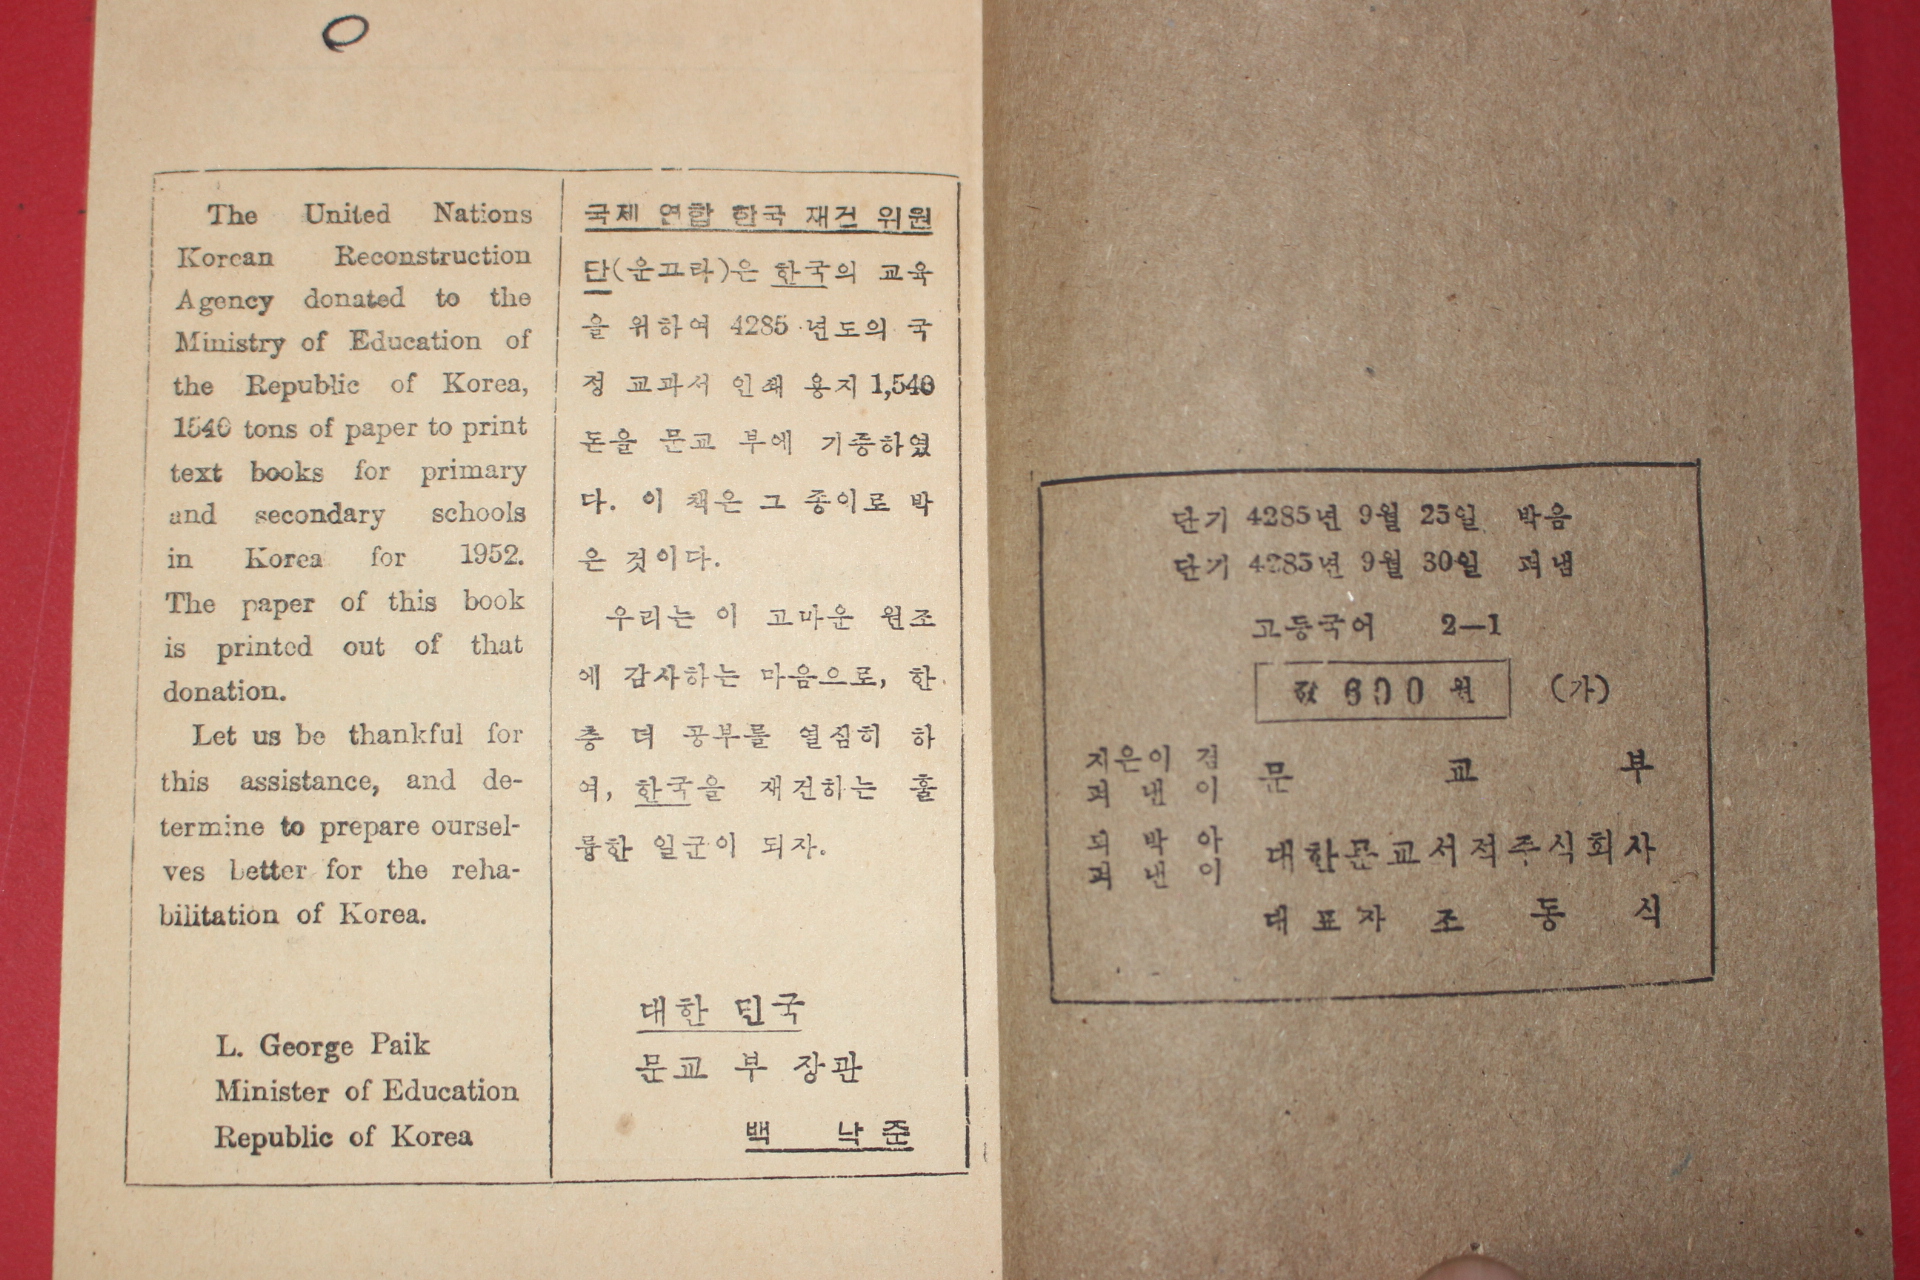 The United Nations
Korean Reconstruction
Agency donated to the
Ministry of Education of
the Republic of Korea,
1540 tons of paper to print
text books for primary
and secondary schools
in Korea for 1952.
The paper of this book
is printed out of that
donation.
Let us be thankful for
this assistance, and de-
termine to prepare oursel-
ves better for the reha-
bilitation of Korea.
L. George Paik
Minister of Education
Republic of Korea
국제 연합 한국 재건 위원
단(운끄라)은 한국의 교육
을 위하여 4285 년도의 국
정 교과서 인쇄 용지 1,540
톤을 문교 부에 기증하였
다. 이 책은 그 종이로 박
은 것이다.
우리는 이 고마운 원조
에 감사하는 마음으로, 한
층 더 공부를 열심히 하
여, 한국을 재건하는 훌
륭한 일군이 되자.
대한 민국
문교 부 장관
백 낙 준
단기 4285년 9월 25일 박음
단기 4285년 9월 30일 펴냄
고등국어 2—1
값 600 원 (가)
지은이 겸
펴 낸 이
문 교 부
되 박 아
펴 낸 이
대한문교서적주식회사
대표자 조 동 식